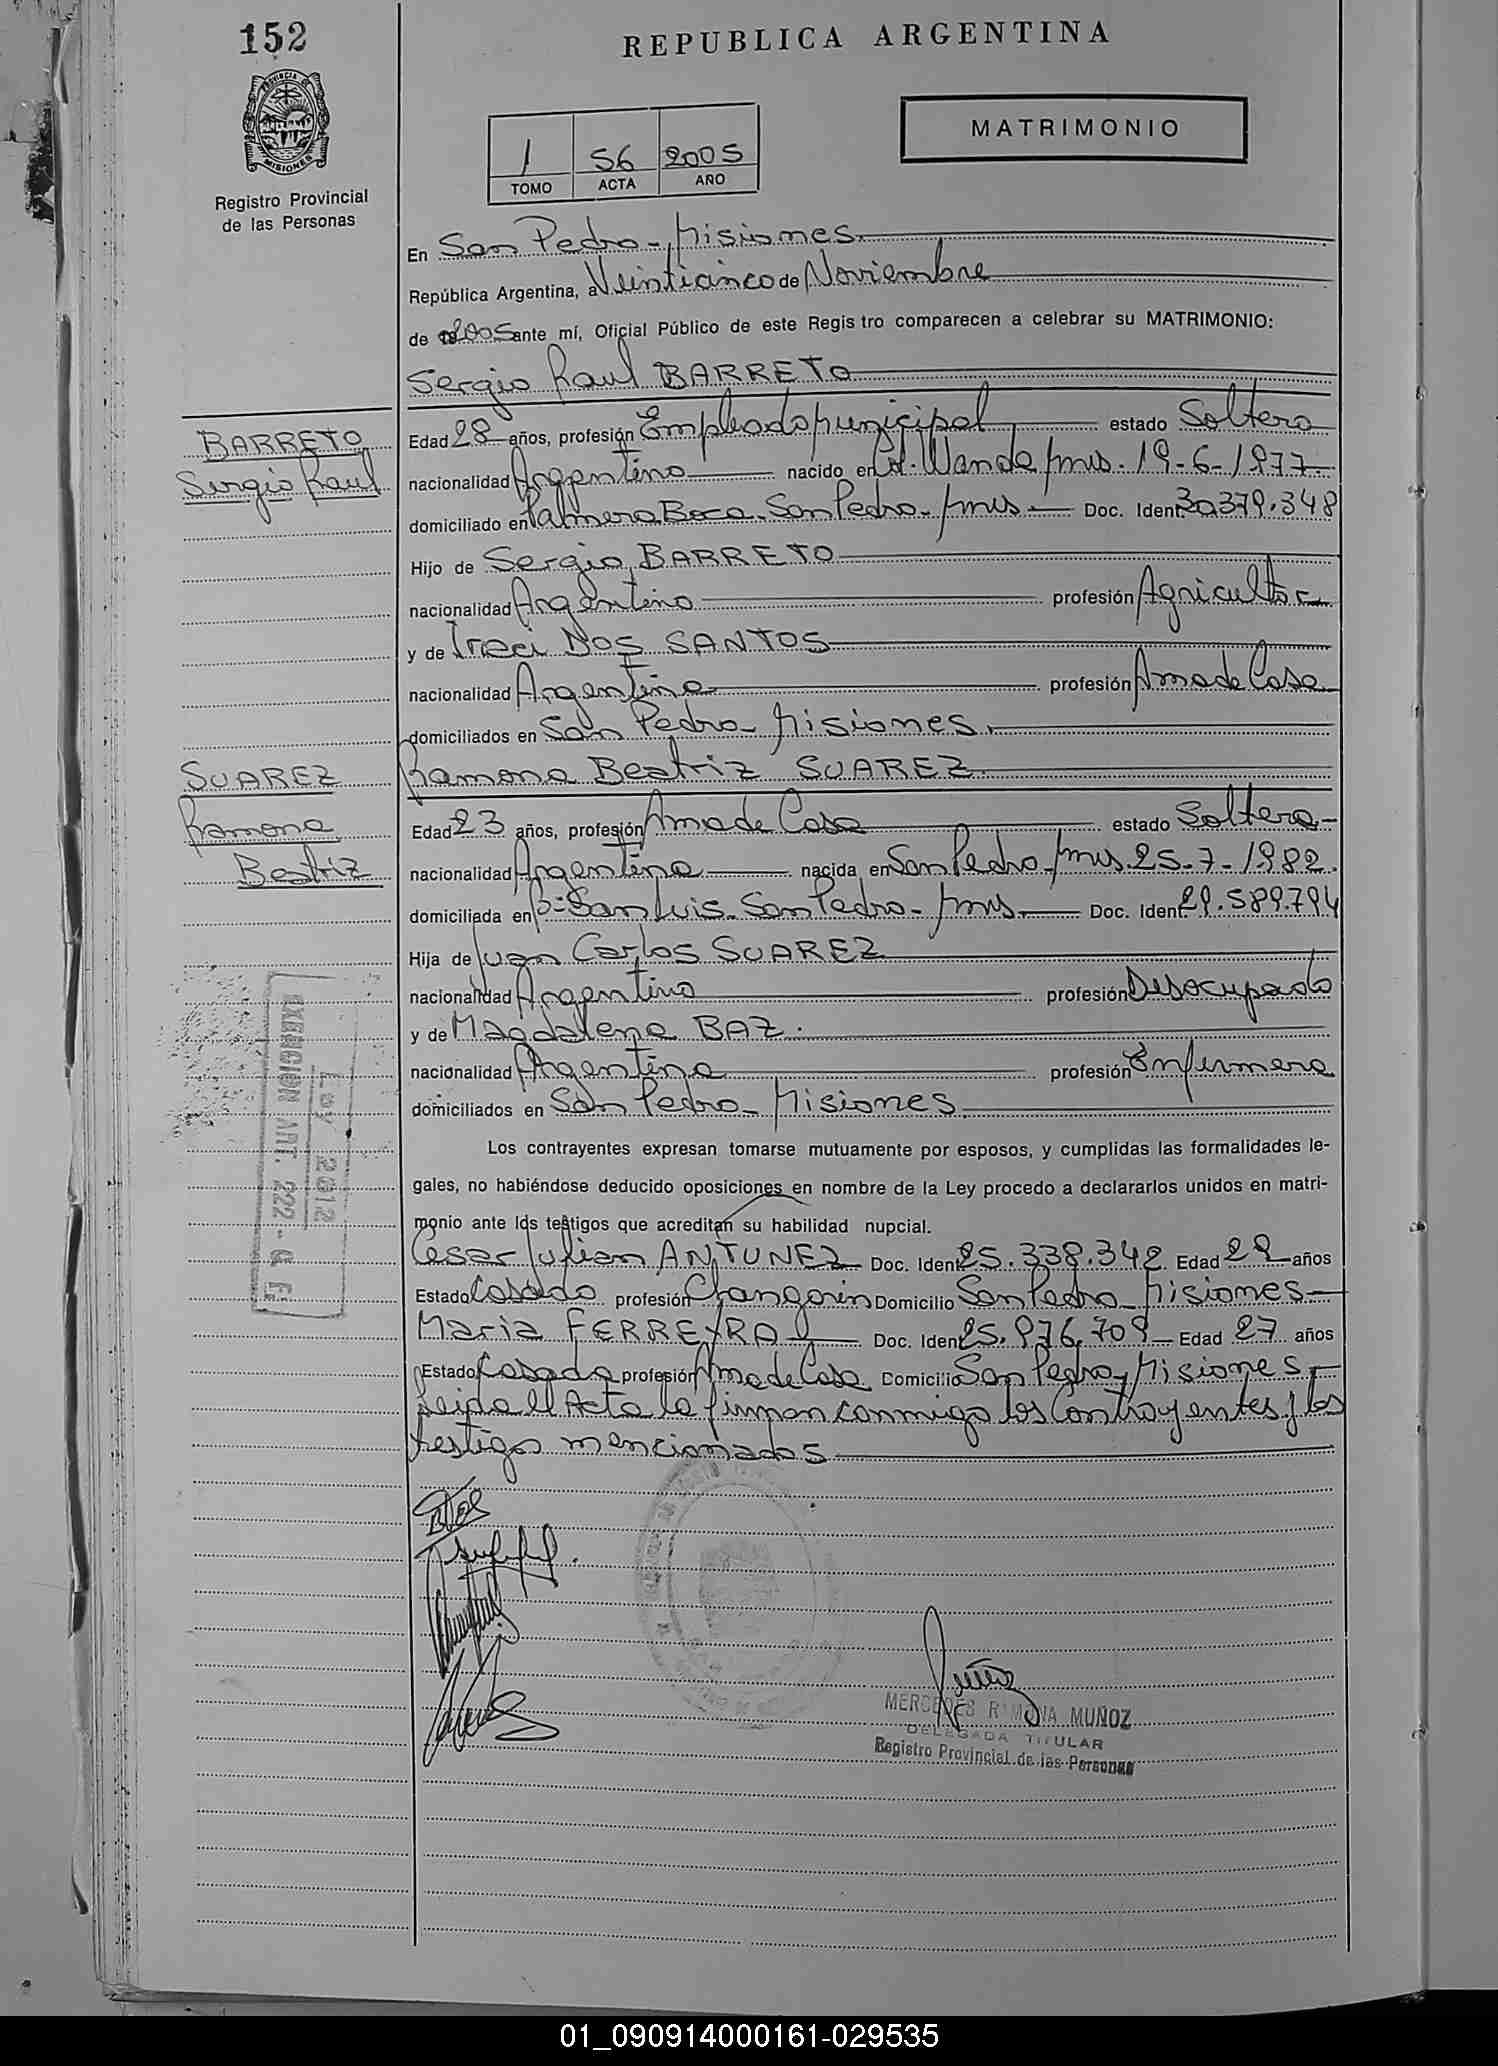 152
REPUBLICA ARGENTINA
PROVINCIA DE
MISIONES
Registro Provincial
de las Personas
MATRIMONIO
1 56 2005
TOMO ACTA AÑO
En San Pedro - Misiones.
República Argentina, a Veinticinco de Noviembre
de 2005 ante mí, Oficial Público de este Registro comparecen a celebrar su MATRIMONIO:
Sergio Raul BARRETO
BARRETO
Sergio Raul
Edad 28 años, profesión Empleado municipal estado Soltero
nacionalidad Argentino nacido en Col. Wanda Mnes. 19-6-1977.
domiciliado en Palmera Boca - San Pedro - Mnes Doc. Ident. 30379.348
Hijo de Sergio BARRETO
nacionalidad Argentino profesión Agricultor
y de Ireci DOS SANTOS
nacionalidad Argentina profesión Ama de Casa
domiciliados en San Pedro - Misiones.
SUAREZ
Ramona
Beatriz
Ramona Beatriz SUAREZ
Edad 23 años, profesión Ama de Casa estado Soltera
nacionalidad Argentina nacida en San Pedro - Mnes 25-7-1982.
domiciliada en Bº San Luis - San Pedro - Mnes Doc. Ident. 29.589.794
Hija de Juan Carlos SUAREZ
nacionalidad Argentino profesión Desocupado
y de Magdalena BAZ.
nacionalidad Argentina profesión Enfermera
domiciliados en San Pedro - Misiones
EXENCION ART. 222 - C. F.
Ley 2612
Los contrayentes expresan tomarse mutuamente por esposos, y cumplidas las formalidades le-
gales, no habiéndose deducido oposiciones en nombre de la Ley procedo a declararlos unidos en matri-
monio ante los testigos que acreditan su habilidad nupcial.
Cesar Julian ANTUNEZ Doc. Iden 25.338.342 Edad 29 años
Estado Casado profesión Changarin Domicilio San Pedro - Misiones
Maria FERREYRA Doc. Iden 25.976.709 Edad 27 años
Estado Casada profesión Ama de Casa Domicilio San Pedro - Misiones
Leida el Acta la firman conmigo los Contrayentes y los
testigos mencionados
MERCEDES RAMONA MUÑOZ
DELEGADA TITULAR
Registro Provincial de las Personas
01_090914000161-029535